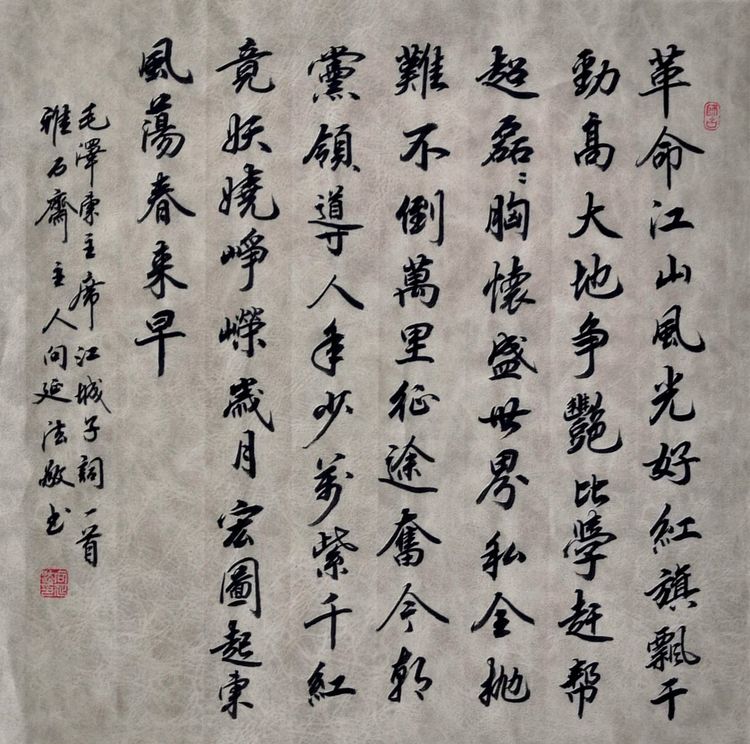 革命江山風光好紅旗飄干
勁高大地争艷比學赶帮
超磊〻胸懷盛世界私全抛
難不倒萬里征途奮今朝
黨領導人年少萬紫千紅
竟妖嬈崢嶸歲月宏圖起東
風蕩春来早
毛澤東主席江城子詞一首
雅石齋主人向延法敬书